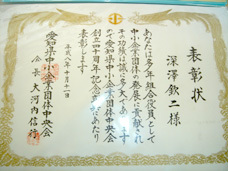 表彰状
深澤欽二様
あなたは多年組合役員として
中小企業団体の発展に貢献され
その功績は誠に多大であります
よって愛知県中小企業団体中央会
創立四十周年記念式典にあたり
表彰します
平成八年十月十一日
愛知県中小企業団体中央会
会長 大河内信行